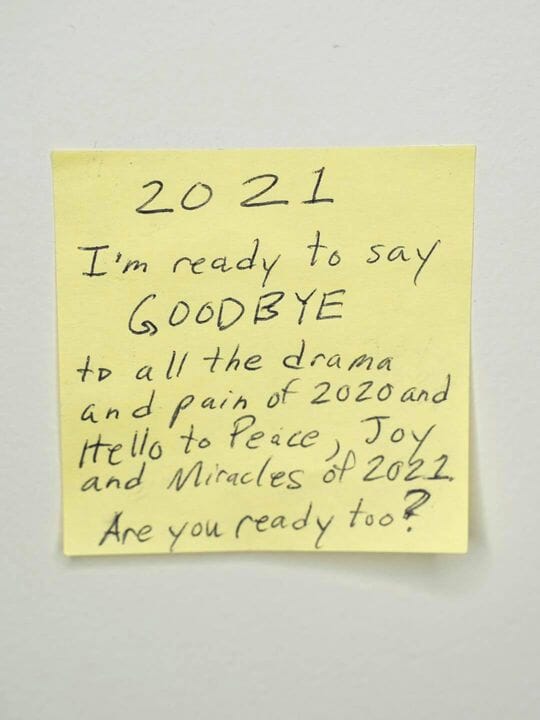 2021
I'm ready to say
GOODBYE
to all the drama
and pain of 2020 and
Hello to Peace, Joy
and Miracles of 2021.
Are you ready too?